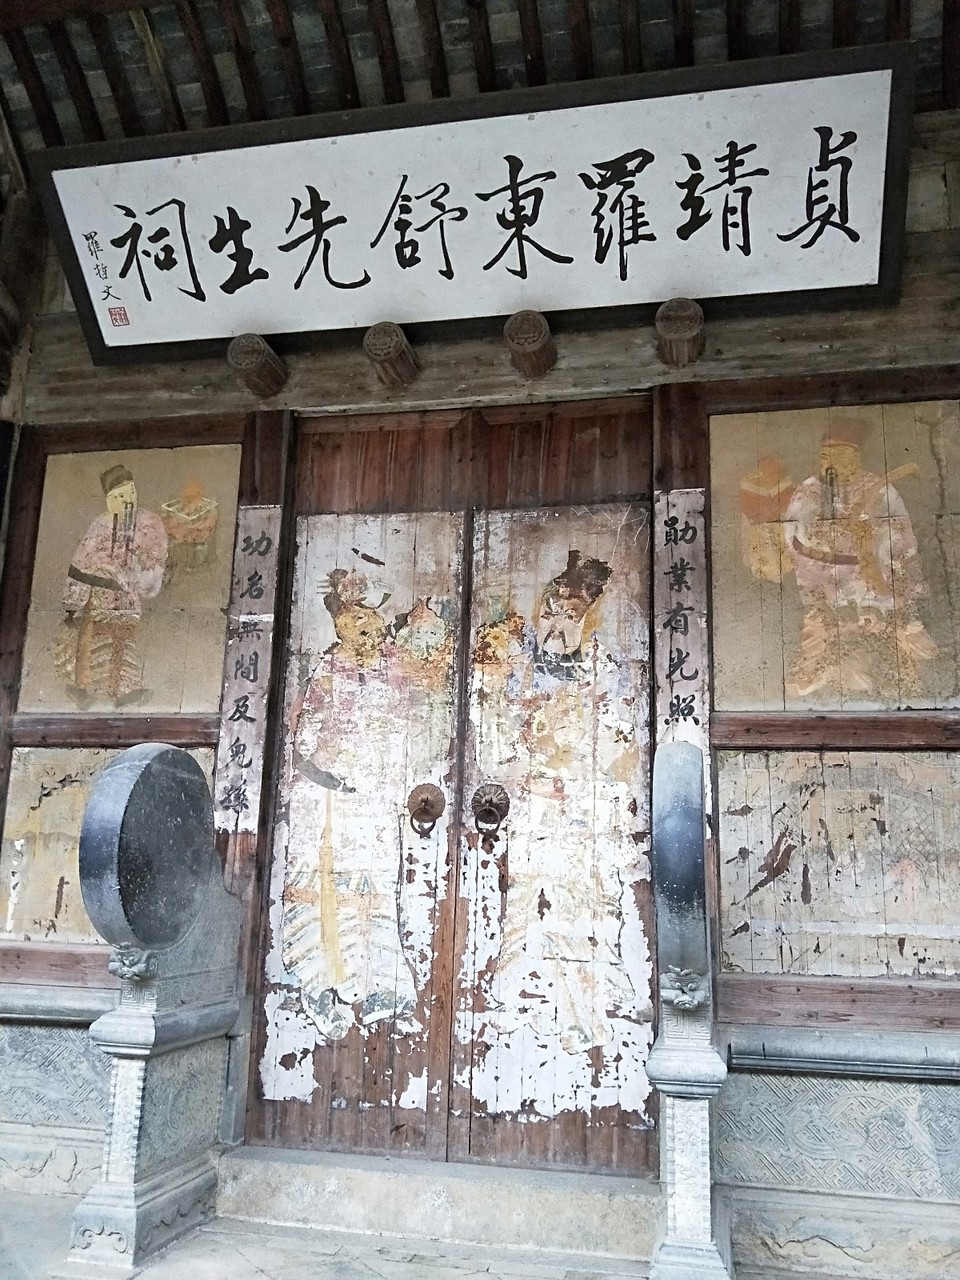 貞靖羅東舒先生祠
羅哲文
勛業有光照
功名無間及兒孫